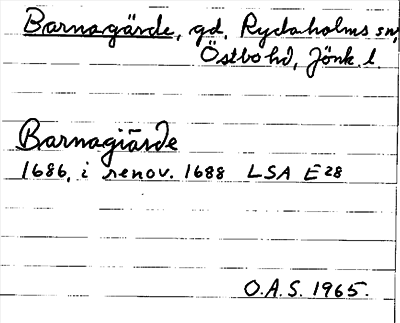 Barnagärde, gd, Rydaholms sn,
Östbo hd, Jönk. l.
Barnagiärde
1686, i renov. 1688 LSA E 28
O.A.S. 1965.